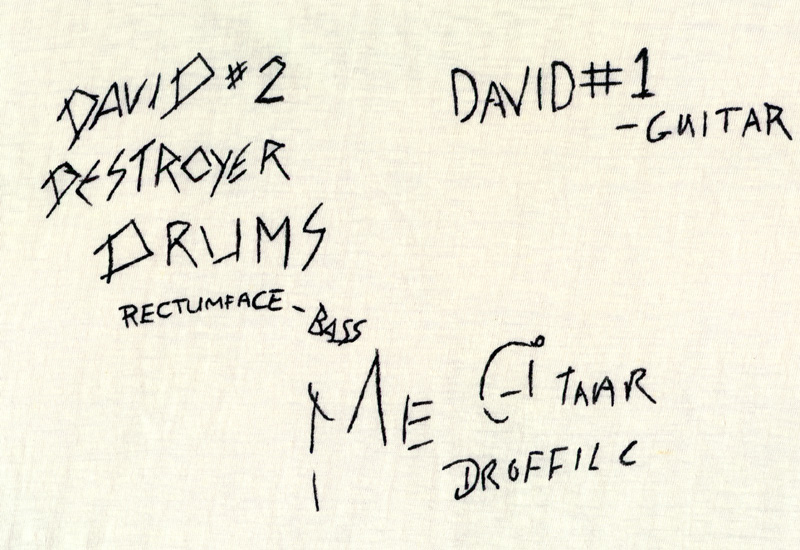 DAVID #2
DESTROYER
DRUMS
RECTUMFACE - BASS
DAVID #1
- GUITAR
ME GITAAR
DROFFILC